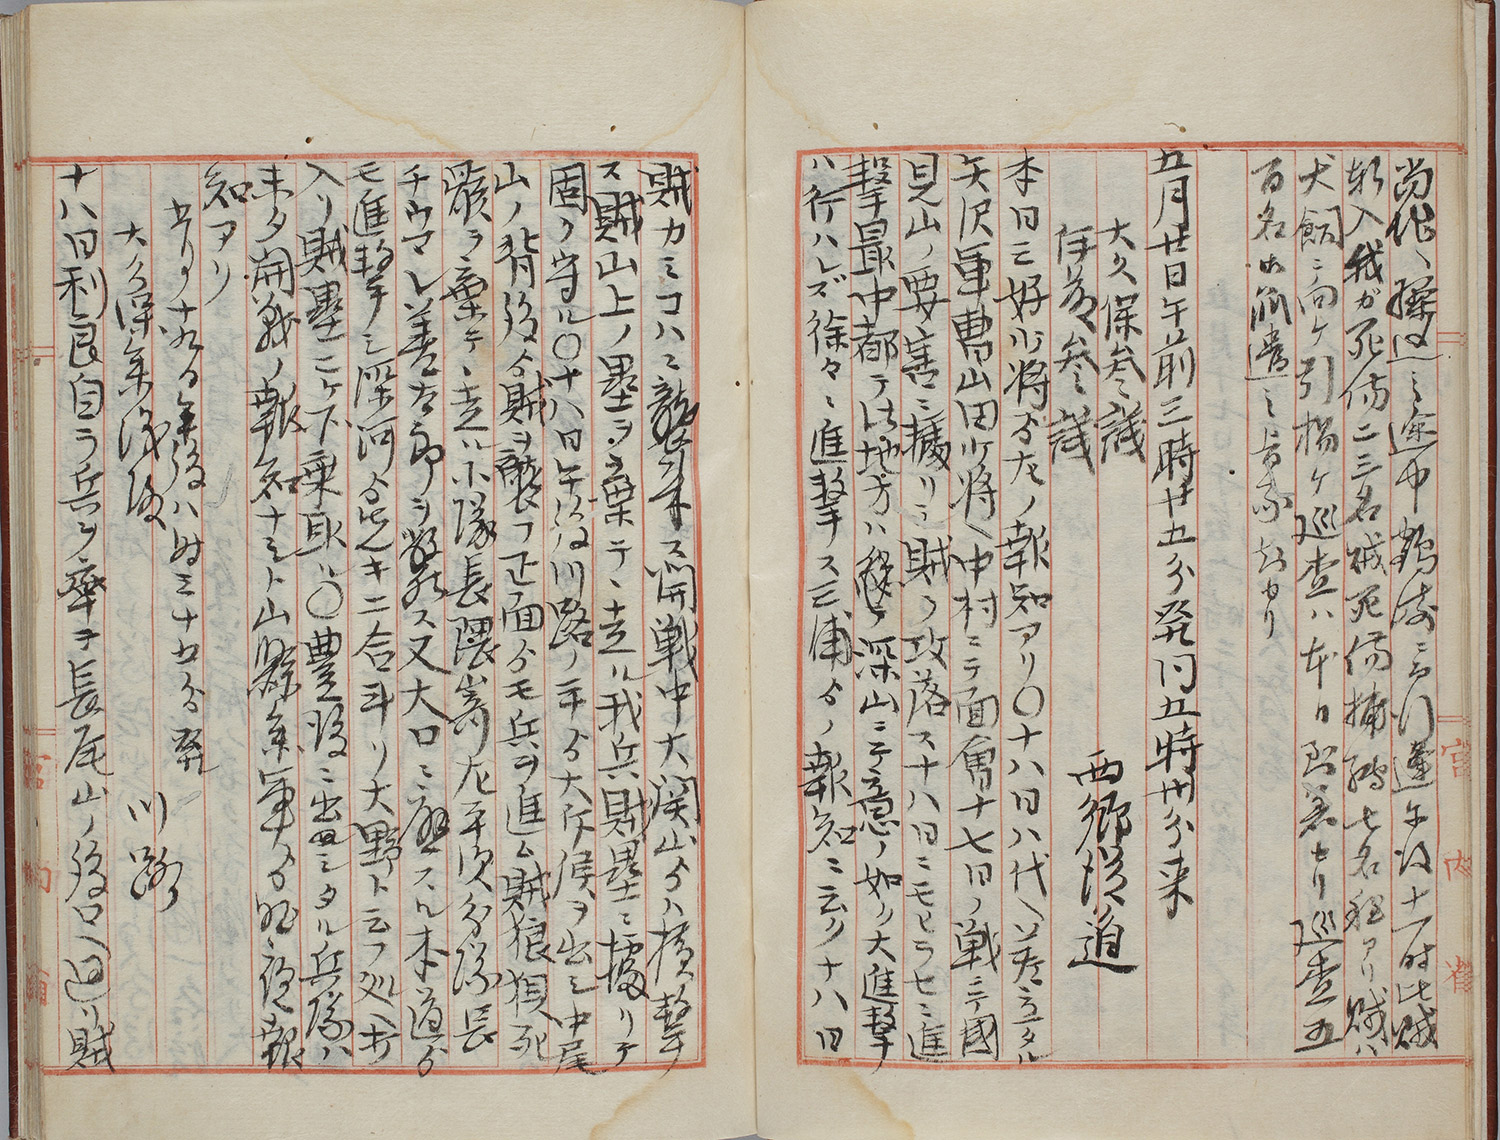 転入我ガ死傷二三名賊死傷捕縛七名程アリ賊ハ
犬飼ニ向ケ引揚ケ巡査ハ本日到着セリ巡査五
百名出
五月廿日午前三時廿五分発同五時卅分来
大久保参議
伊藤参議
西郷従道
本日三好少将ヨリ左ノ報知アリ〇十八日八代ヘ差立タル
矢沢軍曹山田少将ヘ中村ニテ面会十七日ノ戦ニテ國
見山ノ要害ニ據リシ賊ヲ攻落ス十八日ニモヒラセニ進
撃最中都テ此地方ハ深山ニテ意ノ如ク大進撃
ハ行ハレズ徐々ニ進撃ス三浦ヨリノ報知ニ云ク十八日
賊カミコハニ襲来ス開戦中大関山ヨリハ横撃
ス賊山上ノ塁ヲ棄テヽ走ル我兵賊塁ニ據リテ
固ク守ル〇十八日午後川路ノ手ヨリ大斥候ヲ出シ中尾
山ノ背後ヨリ賊ヲ襲フ正面ヨリモ兵ヲ進ム賊狼狽死
骸ヲ棄テヽ走ル小隊長隈崎九平次分隊長
チウマレ善太郎ヲ斃ス又大口ニ應スル本道ヨリ
モ進撃シ深河ヨリ先キ二合斗リ大野ト云フ処ヘ打
入リ賊塁二ケ下乗取ル〇豊後ニ出張シタル兵隊ハ
未タ開戦ノ報知ナシト山縣参軍ヨリ昨夜報
知アリ
五月十九日午後八時三十五分発
大久保参議殿
川路
十八日利良自ラ兵ヲ率ヰ長尾山ノ後口ヘ廻リ賊
宮内省